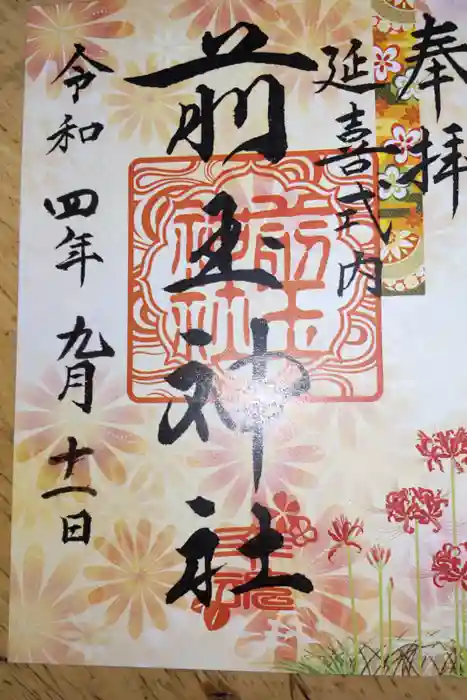 奉拝
延喜式内
前玉神社
令和四年九月十一日
前玉
神社